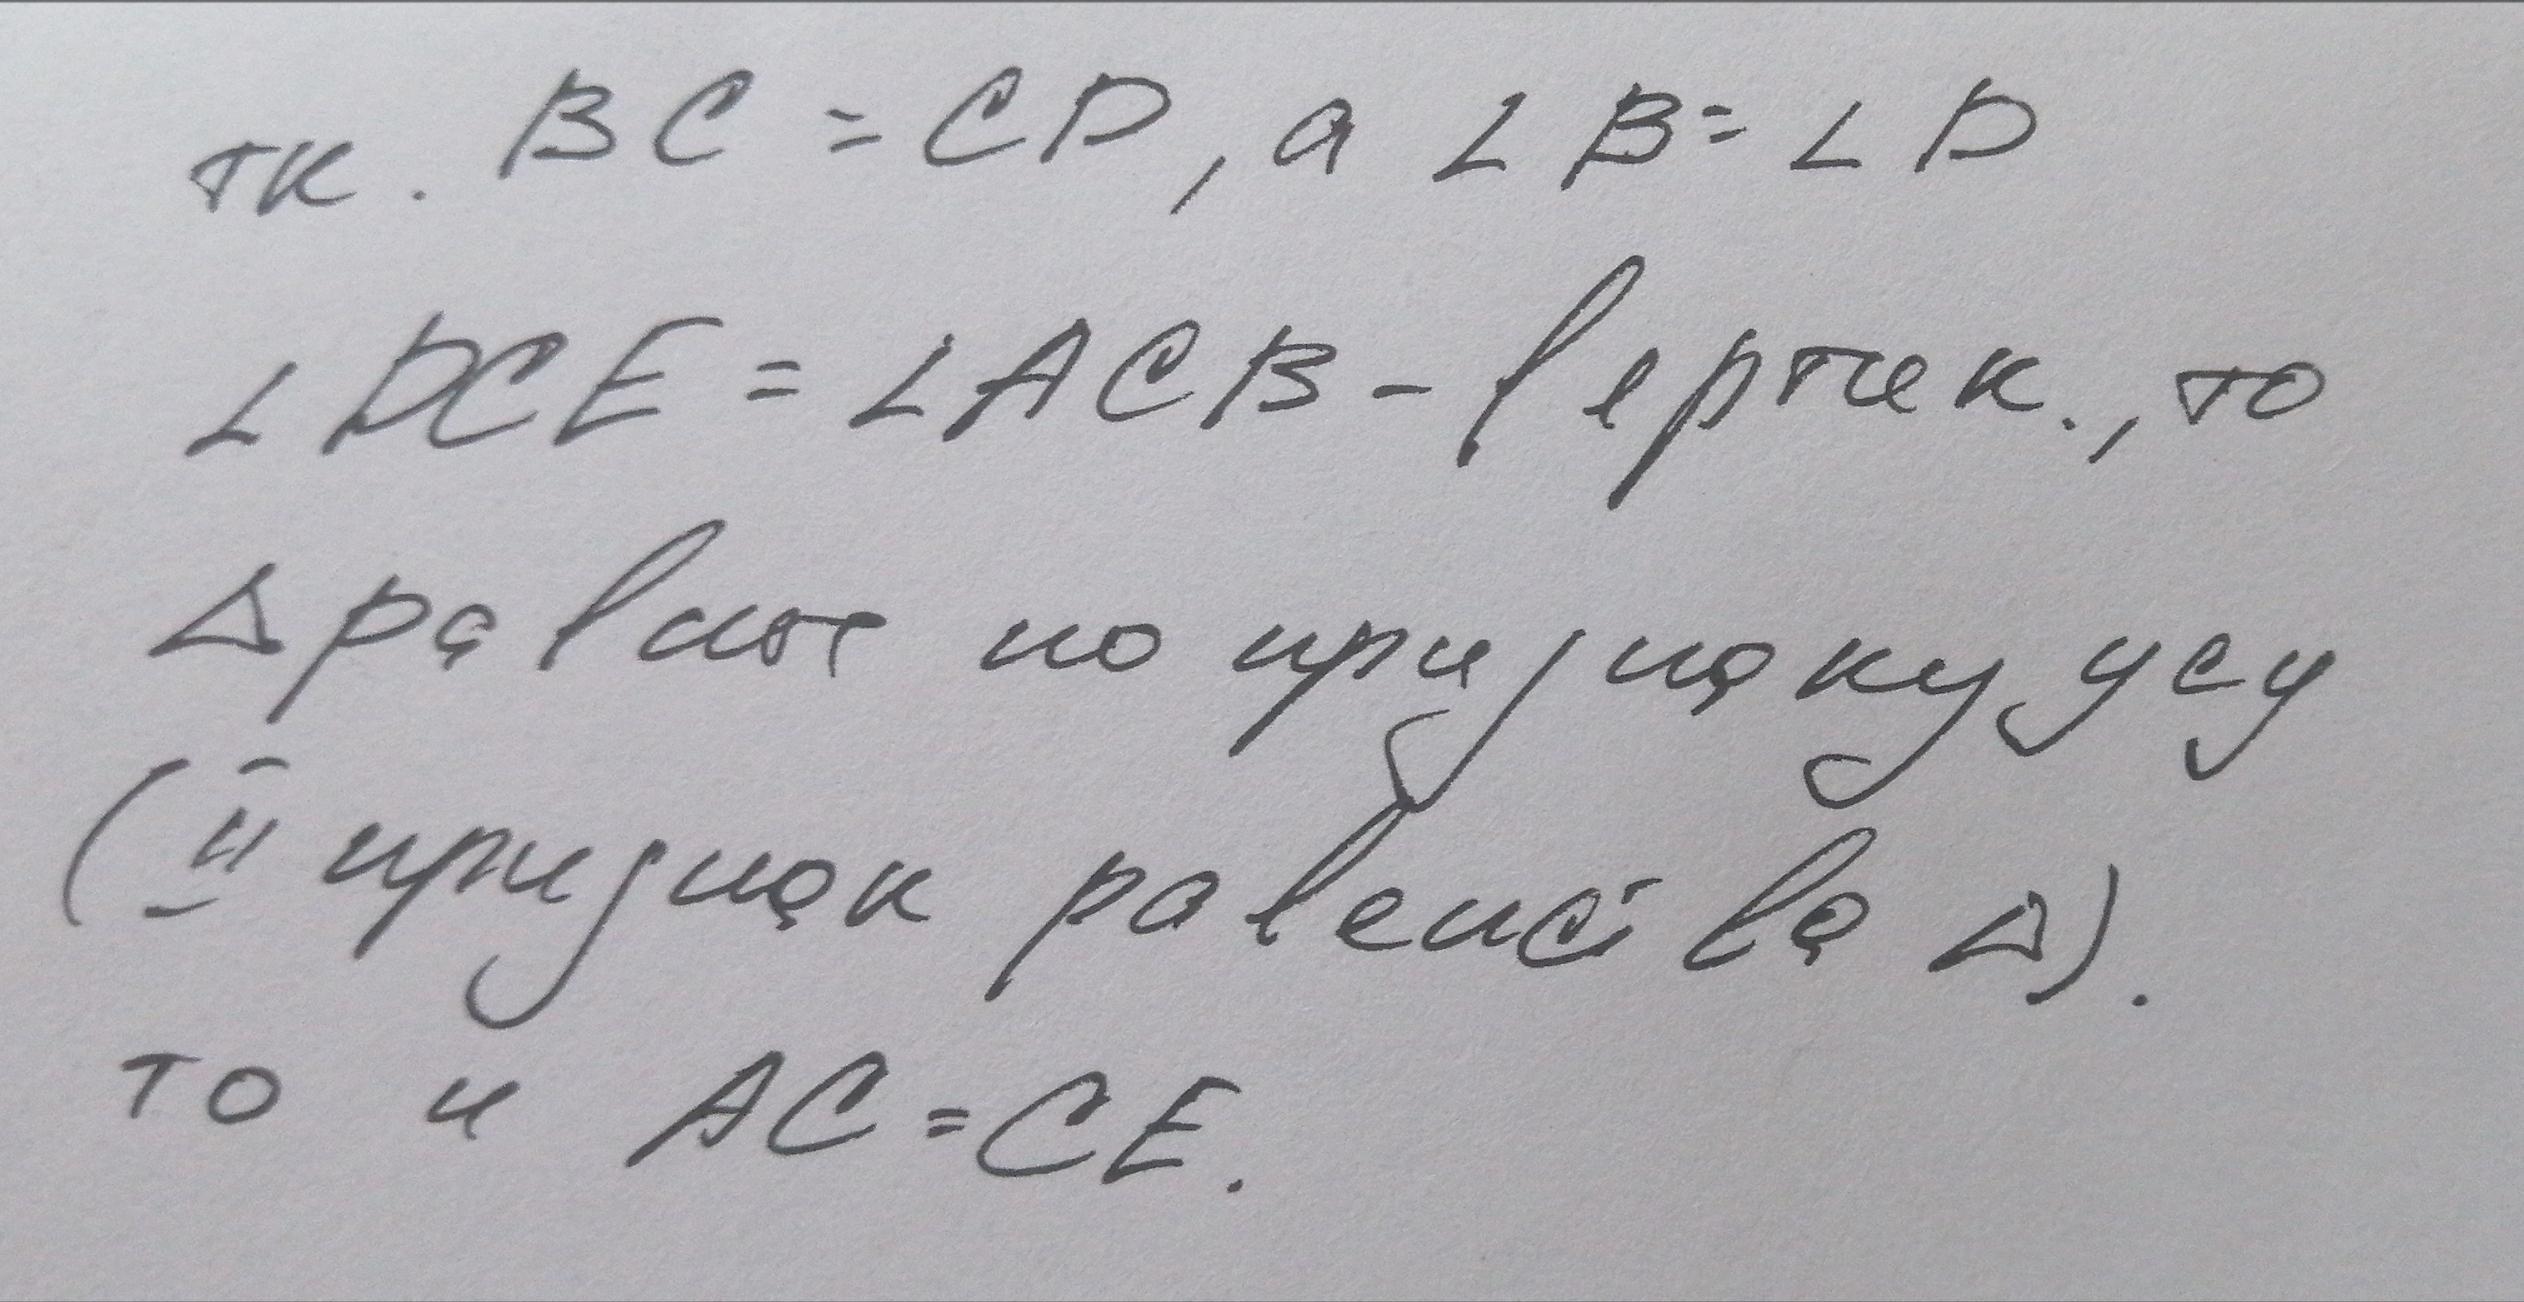 тк. BC = CD, а ∠B = ∠D
∠DCE = ∠ACB - вертик., то
Δ равные по признаку усу
(II признак равенства Δ).
то и AC = CE.